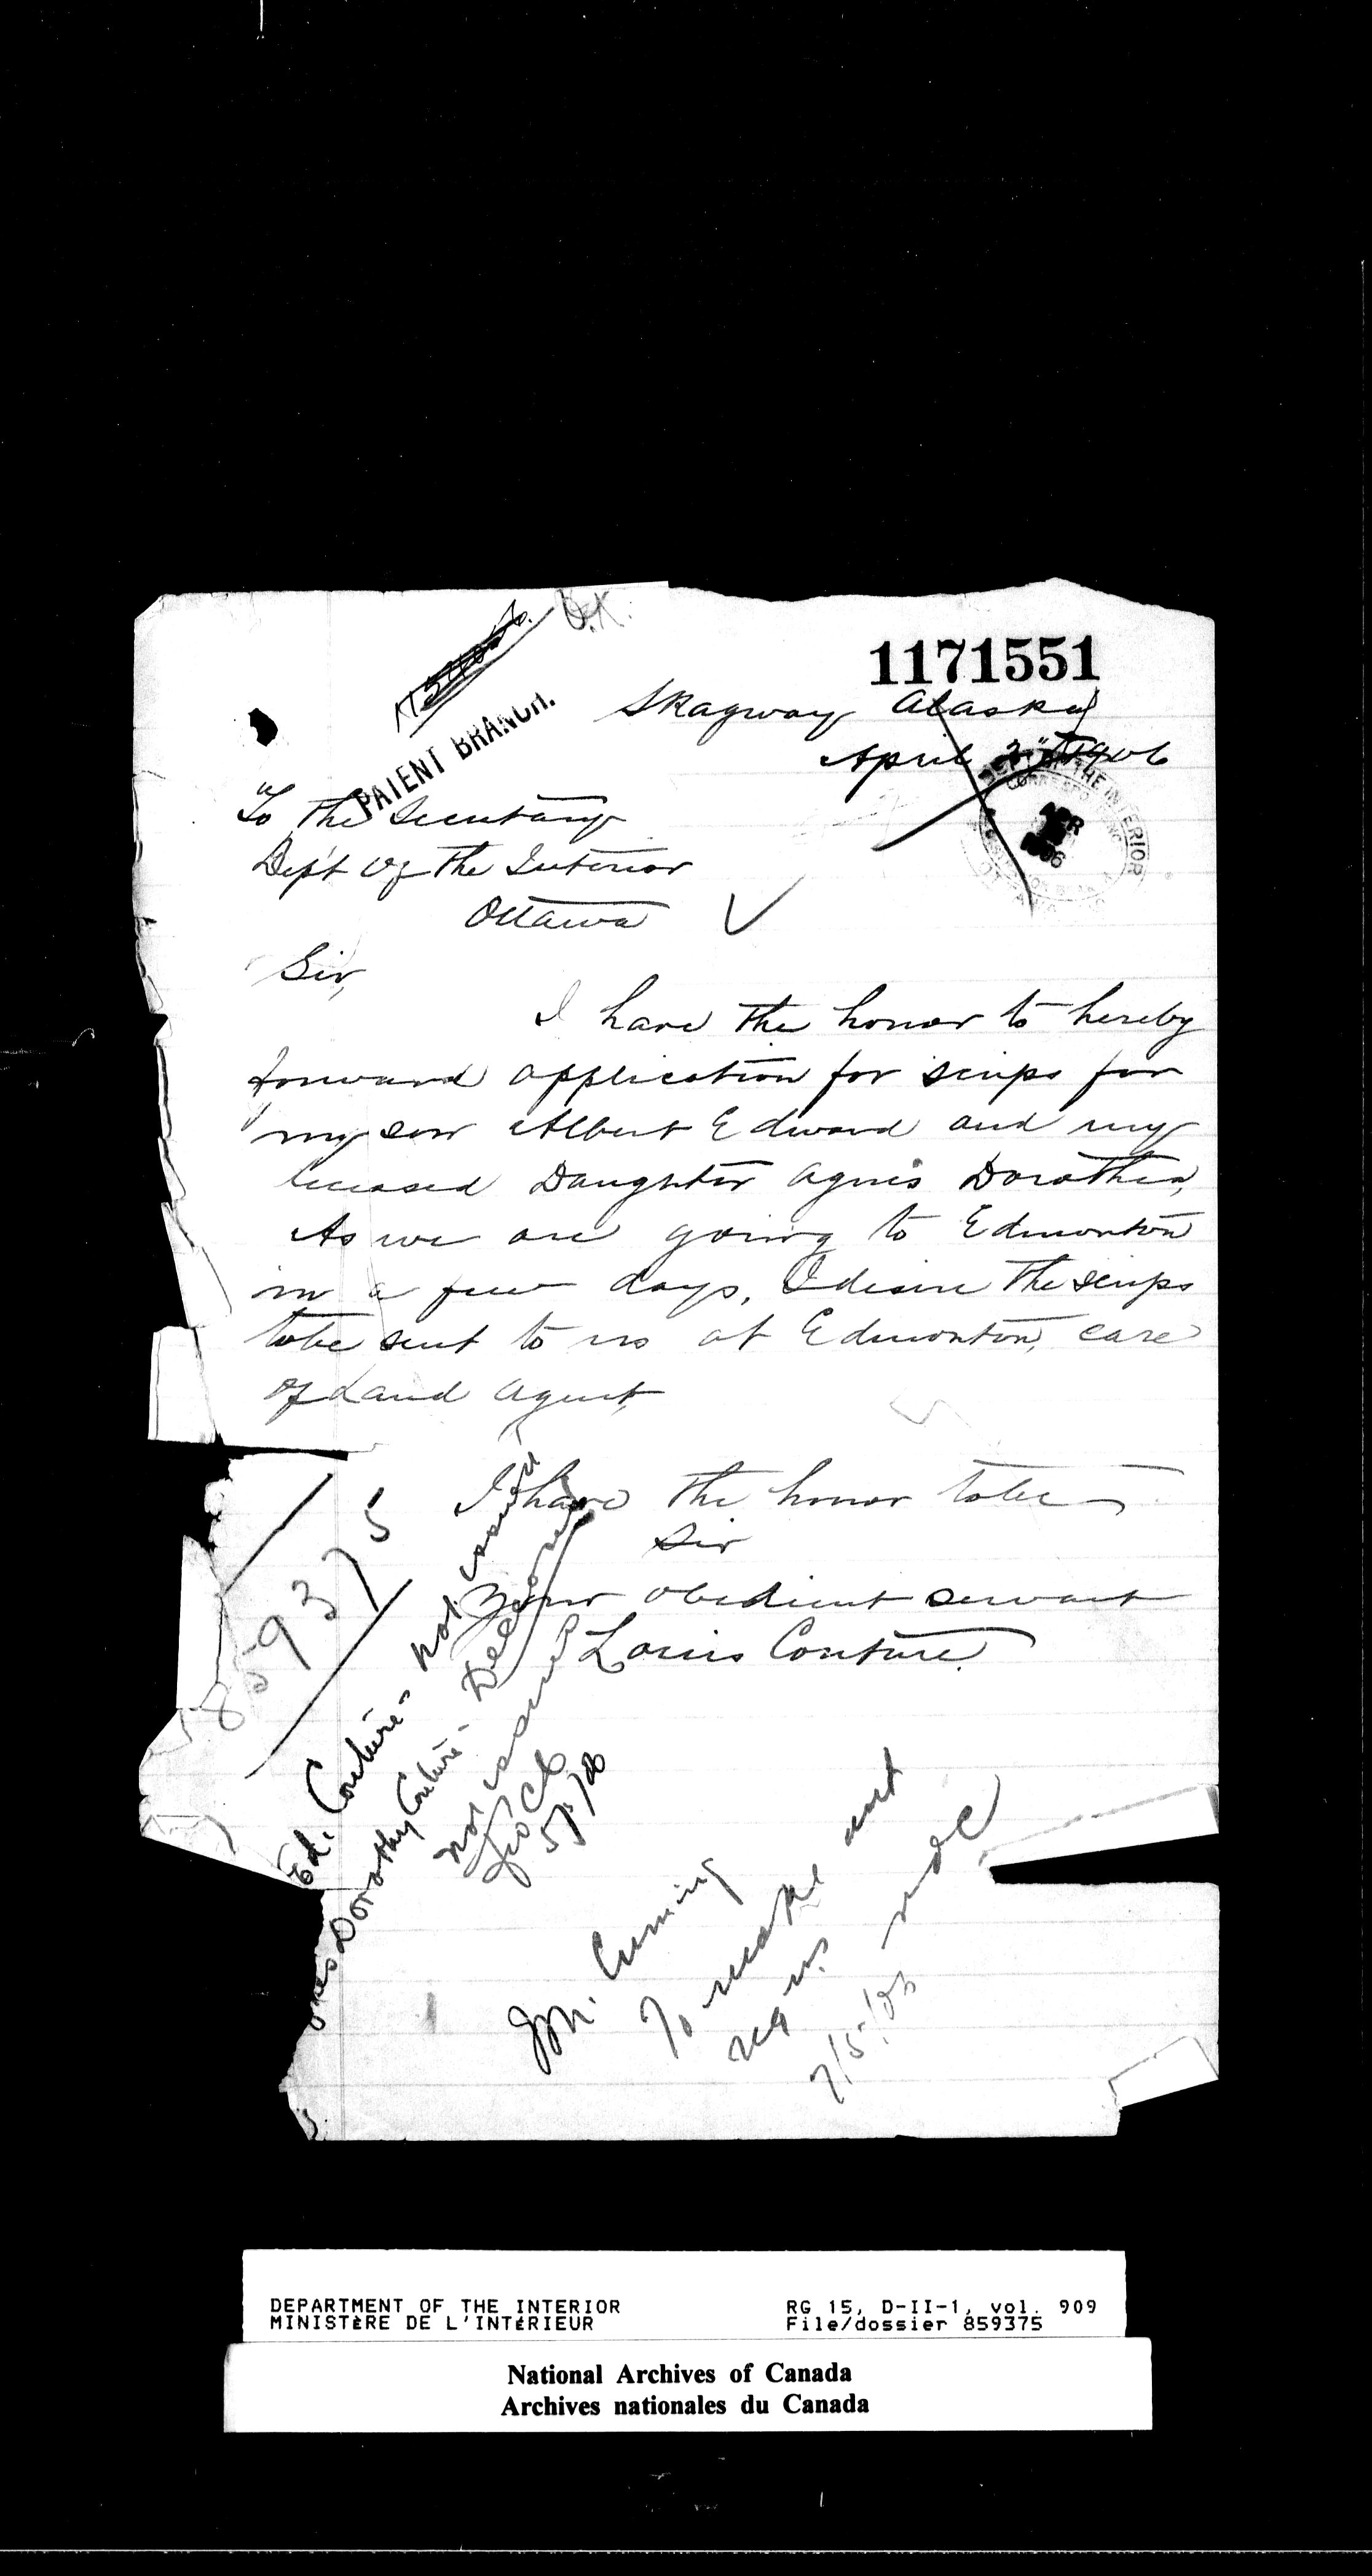 O.K.
1171551
PATENT BRANCH.
Skagway Alaska
April 1906
To The Secretary
Dep't of The Interior
Ottawa
Sir,
I have the honor to hereby
forward application for scrips for
my son Albert Edward and my
deceased Daughter Agnes Dorothea,
As we are going to Edmonton
in a few days, I desire The scrips
to be sent to us at Edmonton, care
of Land Agent,
I have the honor to be
Sir
Your obedient servant
Louis Couture.
859375
Ed. Couture - not issued
Dorothy Couture - Deceased
not issued
Mr. Cuming
To make
DEPARTMENT OF THE INTERIOR
MINISTÈRE DE L'INTÉRIEUR
RG 15, D-II-1, vol. 909
File/dossier 859375
National Archives of Canada
Archives nationales du Canada